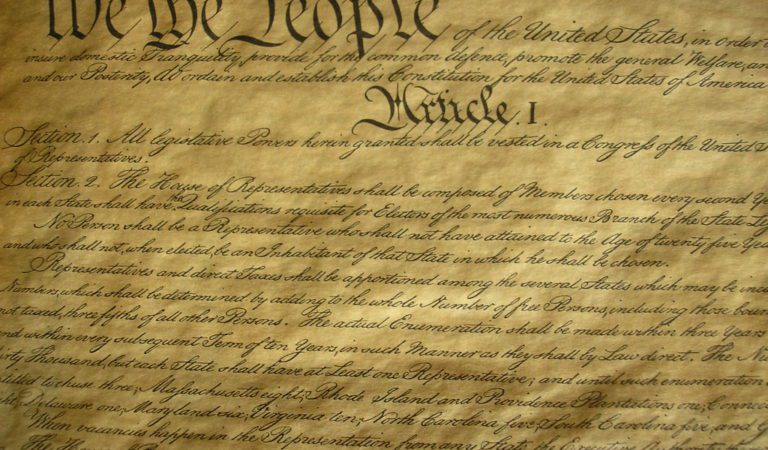 We the People of the United States, in order
insure domestic Tranquility, provide for the common defence, promote the general Welfare, an
and our Posterity, do ordain and establish this Constitution for the United States of America
Article. I.
Section. 1. All legislative Powers herein granted shall be vested in a Congress of the United
of Representatives.
Section. 2. The House of Representatives shall be composed of Members chosen every second Ye
in each State shall have the Qualifications requisite for Electors of the most numerous Branch of the State Leg
No Person shall be a Representative who shall not have attained to the Age of twenty five Yea
and who shall not, when elected, be an Inhabitant of that State in which he shall be chosen.
Representatives and direct Taxes shall be apportioned among the several States which may be inclu
Numbers, which shall be determined by adding to the whole Number of free Persons, including those boun
not taxed, three fifths of all other Persons. The actual Enumeration shall be made within three Years
and within every subsequent Term of ten Years, in such Manner as they shall by Law direct. The Nu
irty Thousand, but each State shall have at Least one Representative; and until such enumeration
titled to chuse three, Massachusetts eight, Rhode Island and Providence Plantations one, Connec
ght, Delaware one, Maryland six, Virginia ten, North Carolina five, South Carolina five, and G
When vacancies happen in the Representation from any State, the Executive Authority
The House